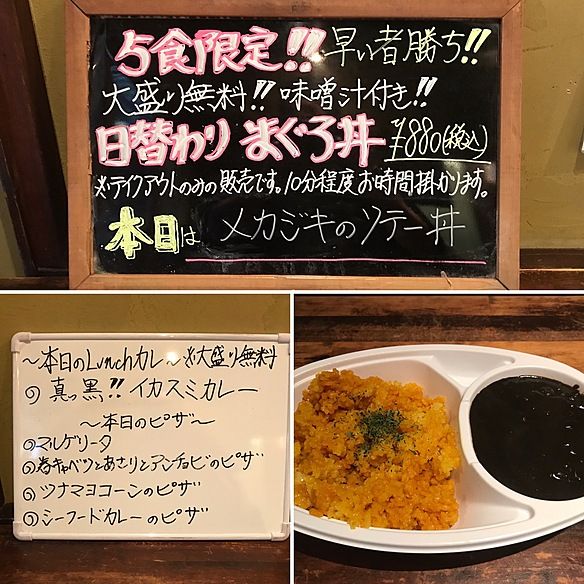 5食限定!! 早い者勝ち!!
大盛り無料!! 味噌汁付き!!
日替わり まぐろ丼 ¥880(税込)
※テイクアウトのみの販売です。10分程度お時間掛かります。
本日は メカジキのソテー丼
〜本日のLunchカレー〜 ※大盛り無料
真っ黒!! イカスミカレー
〜本日のピザ〜
マルゲリータ
春キャベツとあさりとアンチョビのピザ
ツナマヨコーンのピザ
シーフードカレーのピザ